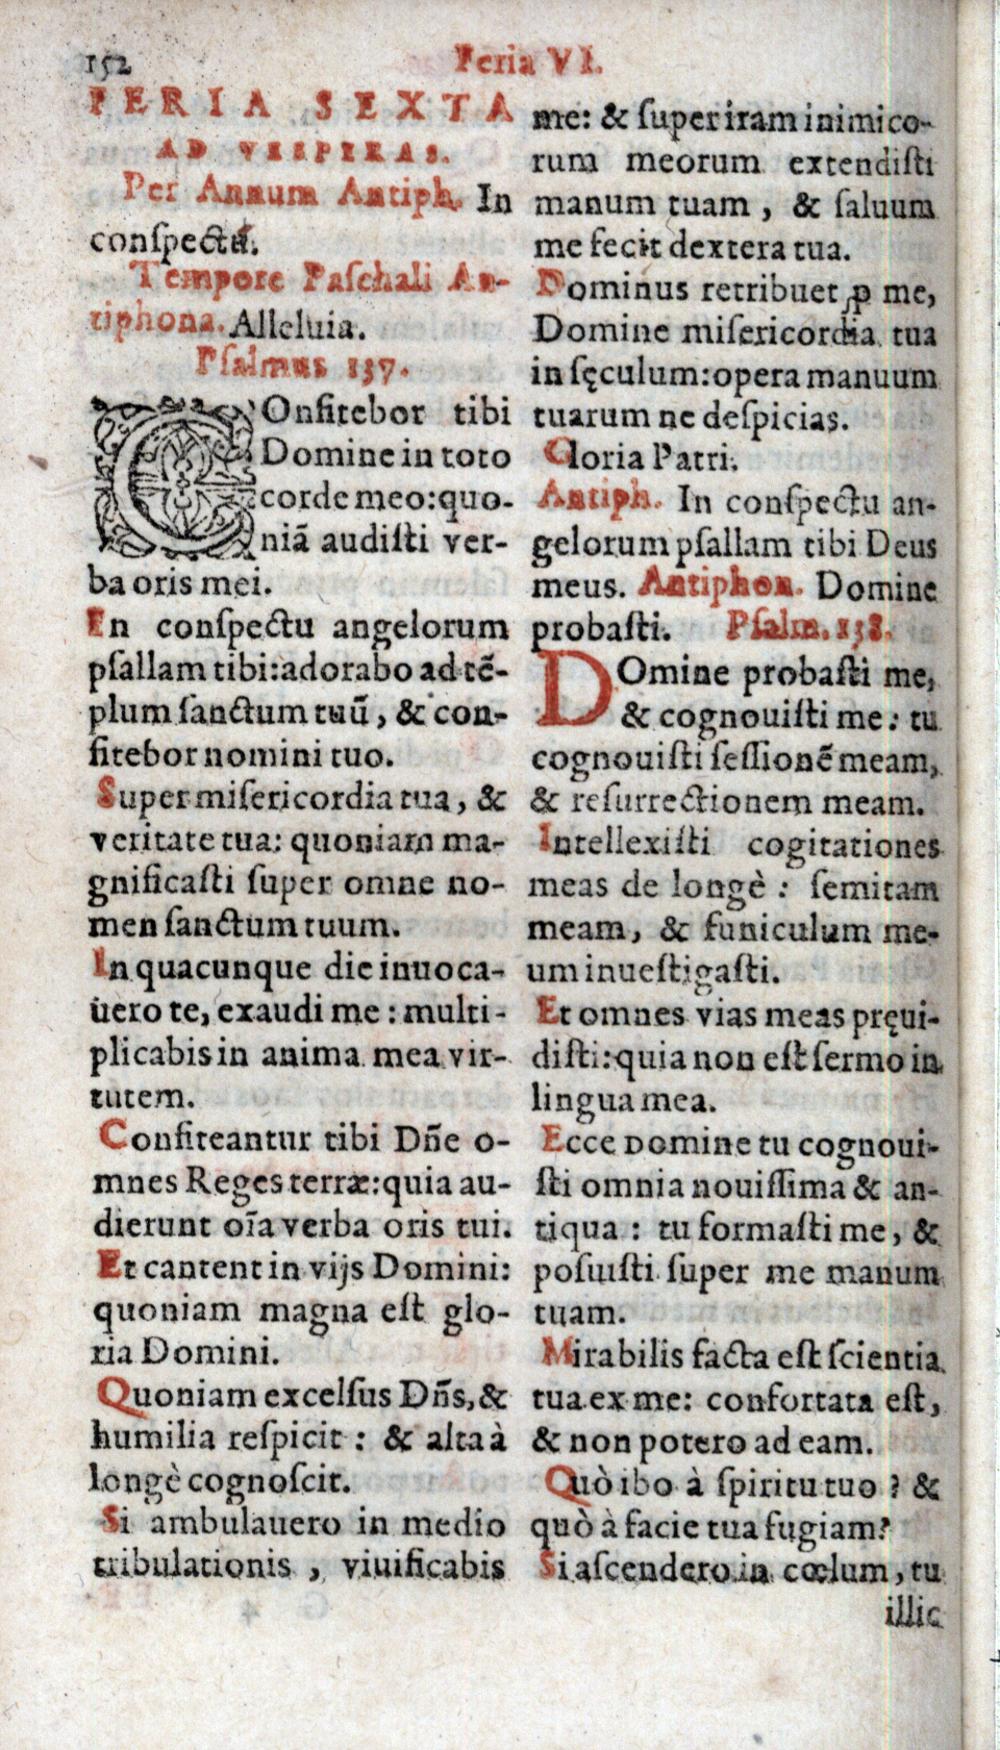 152
Feria VI.
FERIA SEXTA
AD VESPERAS.
Per Annum Antiph. In
conſpectu.
Tempore Paſchali An-
tiphona. Alleluia.
Pſalmus 137.
COnfitebor tibi
Domine in toto
corde meo: quo-
niã audiſti ver-
ba oris mei.
In conſpectu angelorum
pſallam tibi: adorabo ad tẽ-
plum ſanctum tuũ, & con-
fitebor nomini tuo.
Super miſericordia tua, &
veritate tua: quoniam ma-
gnificaſti ſuper omne no-
men ſanctum tuum.
In quacunque die inuoca-
uero te, exaudi me: multi-
plicabis in anima mea vir-
tutem.
Confiteantur tibi Dñe o-
mnes Reges terræ: quia au-
dierunt oĩa verba oris tui.
Et cantent in vijs Domini:
quoniam magna eſt glo-
ria Domini.
Quoniam excelſus Dñs, &
humilia reſpicit: & alta à
longè cognoſcit.
Si ambulauero in medio
tribulationis, viuificabis
me: & ſuper iram inimico-
rum meorum extendiſti
manum tuam, & ſaluum
me fecit dextera tua.
Dominus retribuet ꝓ me,
Domine miſericordia tua
in ſęculum: opera manuum
tuarum ne deſpicias.
Gloria Patri.
Antiph. In conſpectu an-
gelorum pſallam tibi Deus
meus. Antiphon. Domine
probaſti. Pſalm. 138.
DOmine probaſti me,
& cognouiſti me: tu
cognouiſti ſeſſionẽ meam,
& reſurrectionem meam.
Intellexiſti cogitationes
meas de longè: ſemitam
meam, & funiculum me-
um inueſtigaſti.
Et omnes vias meas pręui-
diſti: quia non eſt ſermo in
lingua mea.
Ecce Domine tu cognoui-
ſti omnia nouiſſima & an-
tiqua: tu formaſti me, &
poſuiſti ſuper me manum
tuam.
Mirabilis facta eſt ſcientia
tua ex me: confortata eſt,
& non potero ad eam.
Quò ibo à ſpiritu tuo? &
quò à facie tua fugiam?
Si aſcendero in cœlum, tu
illic